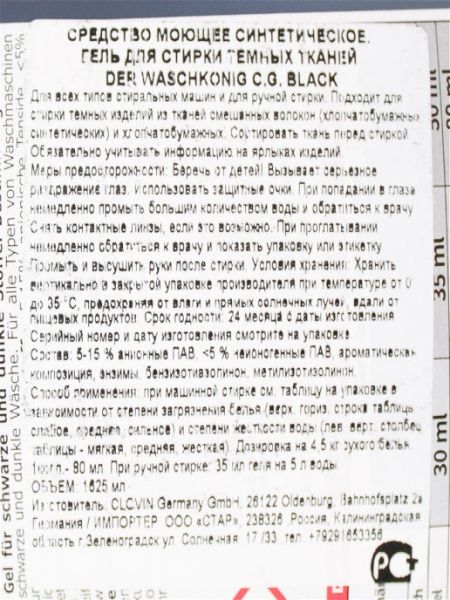 СРЕДСТВО МОЮЩЕЕ СИНТЕТИЧЕСКОЕ.
ГЕЛЬ ДЛЯ СТИРКИ ТЕМНЫХ ТКАНЕЙ
DER WASCHKÖNIG C.G. BLACK
Для всех типов стиральных машин и для ручной стирки. Подходит для
стирки темных изделий из тканей смешанных волокон (хлопчатобумажных
синтетических) и хлопчатобумажных. Сортировать ткань перед стиркой
Обязательно учитывать информацию на ярлыках изделий.
Меры предосторожности: Беречь от детей! Вызывает серьезное
раздражение глаз. Использовать защитные очки. При попадании в глаза
немедленно промыть большим количеством воды и обратиться к врачу
Снять контактные линзы, если это возможно. При проглатывании
немедленно обратиться к врачу и показать упаковку или этикетку
Промыть и высушить руки после стирки. Условия хранения: Хранить
вертикально в закрытой упаковке производителя при температуре от 0
до 35 °С, предохраняя от влаги и прямых солнечных лучей, вдали от
пищевых продуктов. Срок годности: 24 месяца с даты изготовления
Серийный номер и дату изготовления смотрите на упаковке.
Состав: 5-15 % анионные ПАВ, <5 % неионогенные ПАВ, ароматическая
композиция, энзимы, бензизотиазолинон, метилизотиазолинон.
Способ применения: при машинной стирке см. таблицу на упаковке в
зависимости от степени загрязнения белья (верх. гориз. строка таблицы
слабое, среднее, сильное) и степени жесткости воды (лев. верт. столбец
таблицы - мягкая, средняя, жесткая). Дозировка на 4,5 кг сухого белья
1 колп.- 80 мл. При ручной стирке: 35 мл геля на 5 л воды.
ОБЪЕМ: 1625 мл.
Изготовитель: CLOVIN Germany GmbH, 26122 Oldenburg, Bahnhofsplatz 2a
Германия / ИМПОРТЕР ООО «СТАР», 238326, Россия, Калининградская
область г.Зеленоградск ул. Солнечная 17 /33 тел. +79291653356
РСТ
Gel für schwarze und dunkle
schwarze und dunkle Wäsche. Für alle Typen von Waschmaschinen
35 ml
30 ml